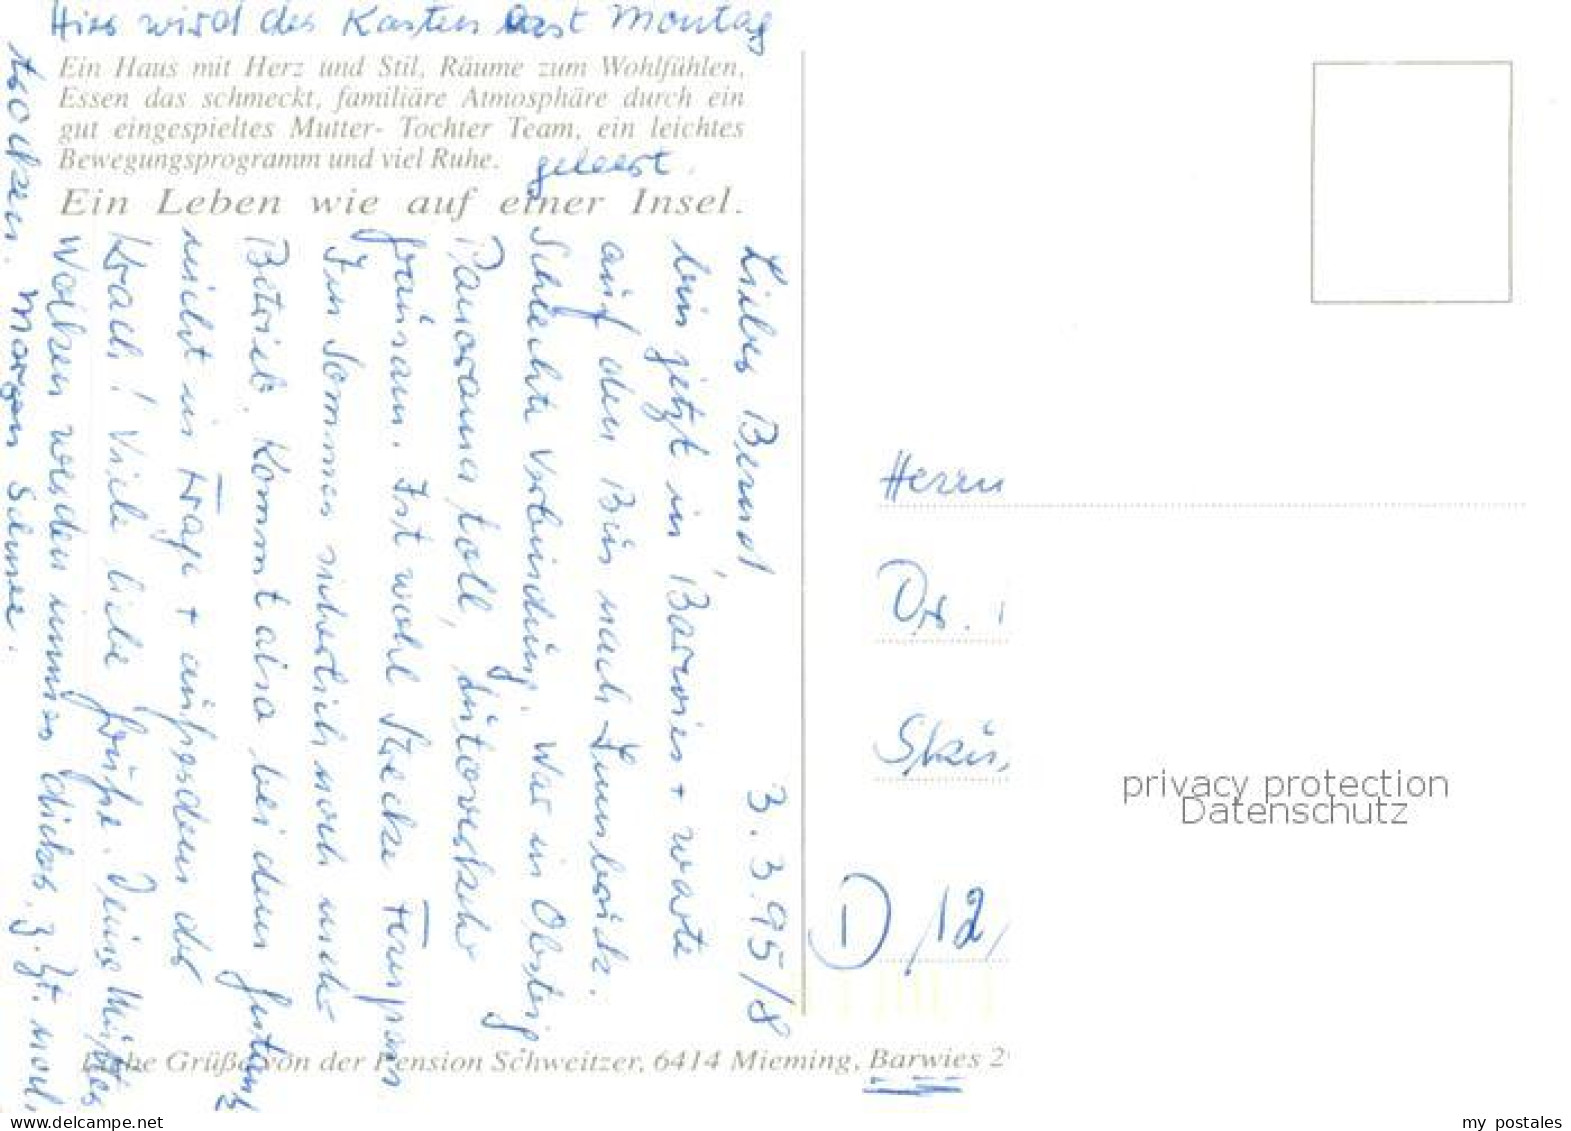 Hier wird der Kasten erst Montag
Ein Haus mit Herz und Stil, Räume zum Wohlfühlen,
Essen das schmeckt, familiäre Atmosphäre durch ein
gut eingespieltes Mutter- Tochter Team, ein leichtes
Bewegungsprogramm und viel Ruhe.
geleert.
Ein Leben wie auf einer Insel.
3.3.95/8
Lieber Bernd
bin jetzt in Barwies + warte
auf den Bus nach Innsbruck.
Schlechte Verbindung. War in Obsteig
Panorama toll, Autoverkehr
grausam. Ist wohl Strecke Fernpass
Im Sommer sicherlich noch mehr
Betrieb. Kommt also bei dem
nicht in Frage + außerdem der
Krach! Viele liebe Grüße. Deine
Wolken werden immer dicker, z. Zt. noch
trocken. Morgen Schnee.
Liebe Grüße von der Pension Schweitzer, 6414 Mieming, Barwies 2
Herrn
Dr.
D 12
privacy protection
Datenschutz
my_postales